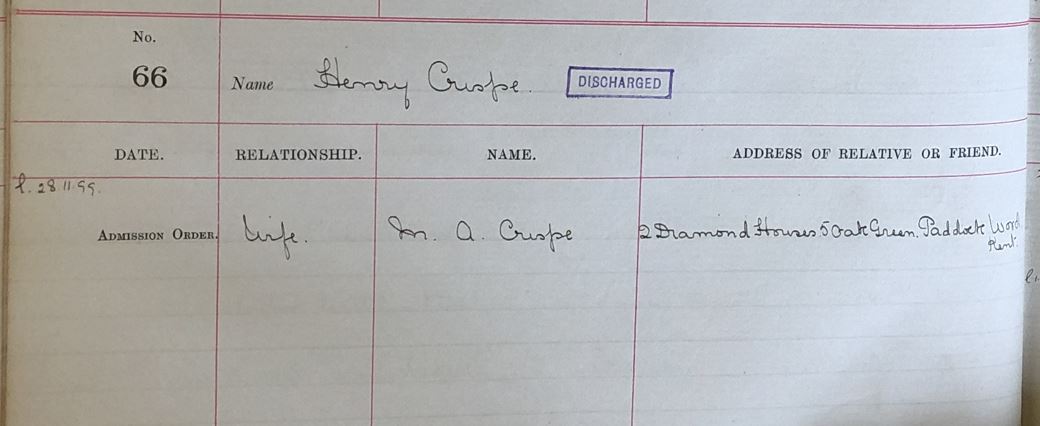 No.
66 Name Henry Crispe. DISCHARGED
DATE. RELATIONSHIP. NAME. ADDRESS OF RELATIVE OR FRIEND.
28 11 99.
ADMISSION ORDER. Wife. M. A. Crispe 2 Diamond Houses 5 Oak Green, Paddock Wood
Kent.